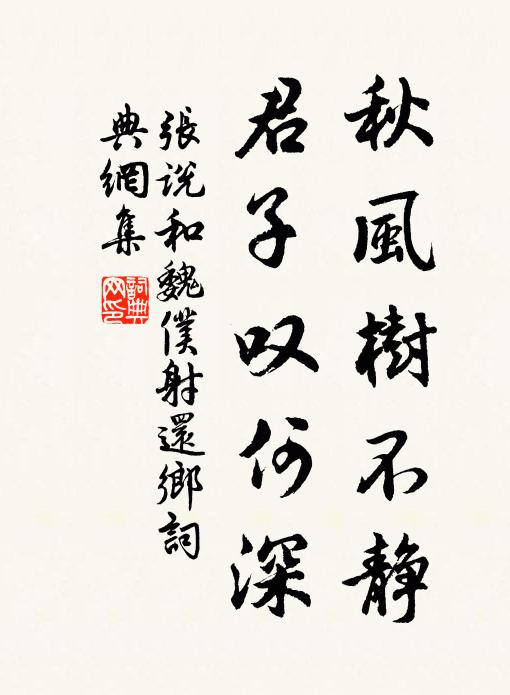 秋風樹不静
君子叹何深
張說和魏僕射還鄉詞
典網集
詞典网印